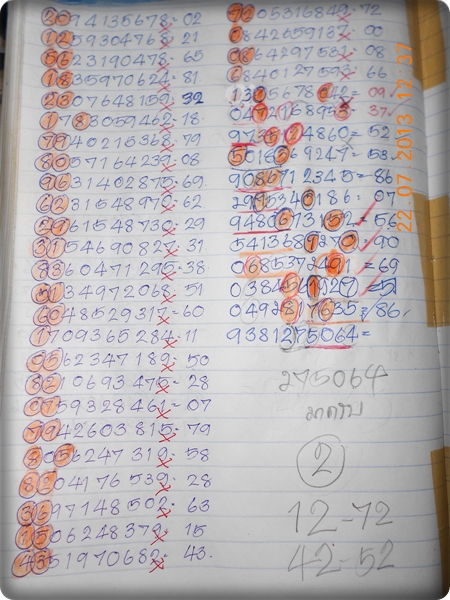 2094135678= 02
1259304768= 21
5623190478= 65
1835970624= 81
2307648159= 32
1783059462= 18
7940215368= 79
8057164239= 08
9631402875= 69
6231548970= 62
3154690827= 31
8360471295= 38
5134972068= 51
6048529317= 60
1709365284= 11
0562347189= 50
8210693475= 28
0759328461= 07
7942603815= 79
8504176539= 28
3697148502= 63
1506248379= 15
4351970682= 43
7205316849= 72
0842659137= 00
0864297531= 08
6840127593= 66
9735124860= 52
5015369247= 53
9086712345= 86
2975340186= 07
9480673152= 56
0685373421= 69
0492817635= 86
9381275064=
275064
มาครบ
2
12-72
42-52
22.07.2013 12:37